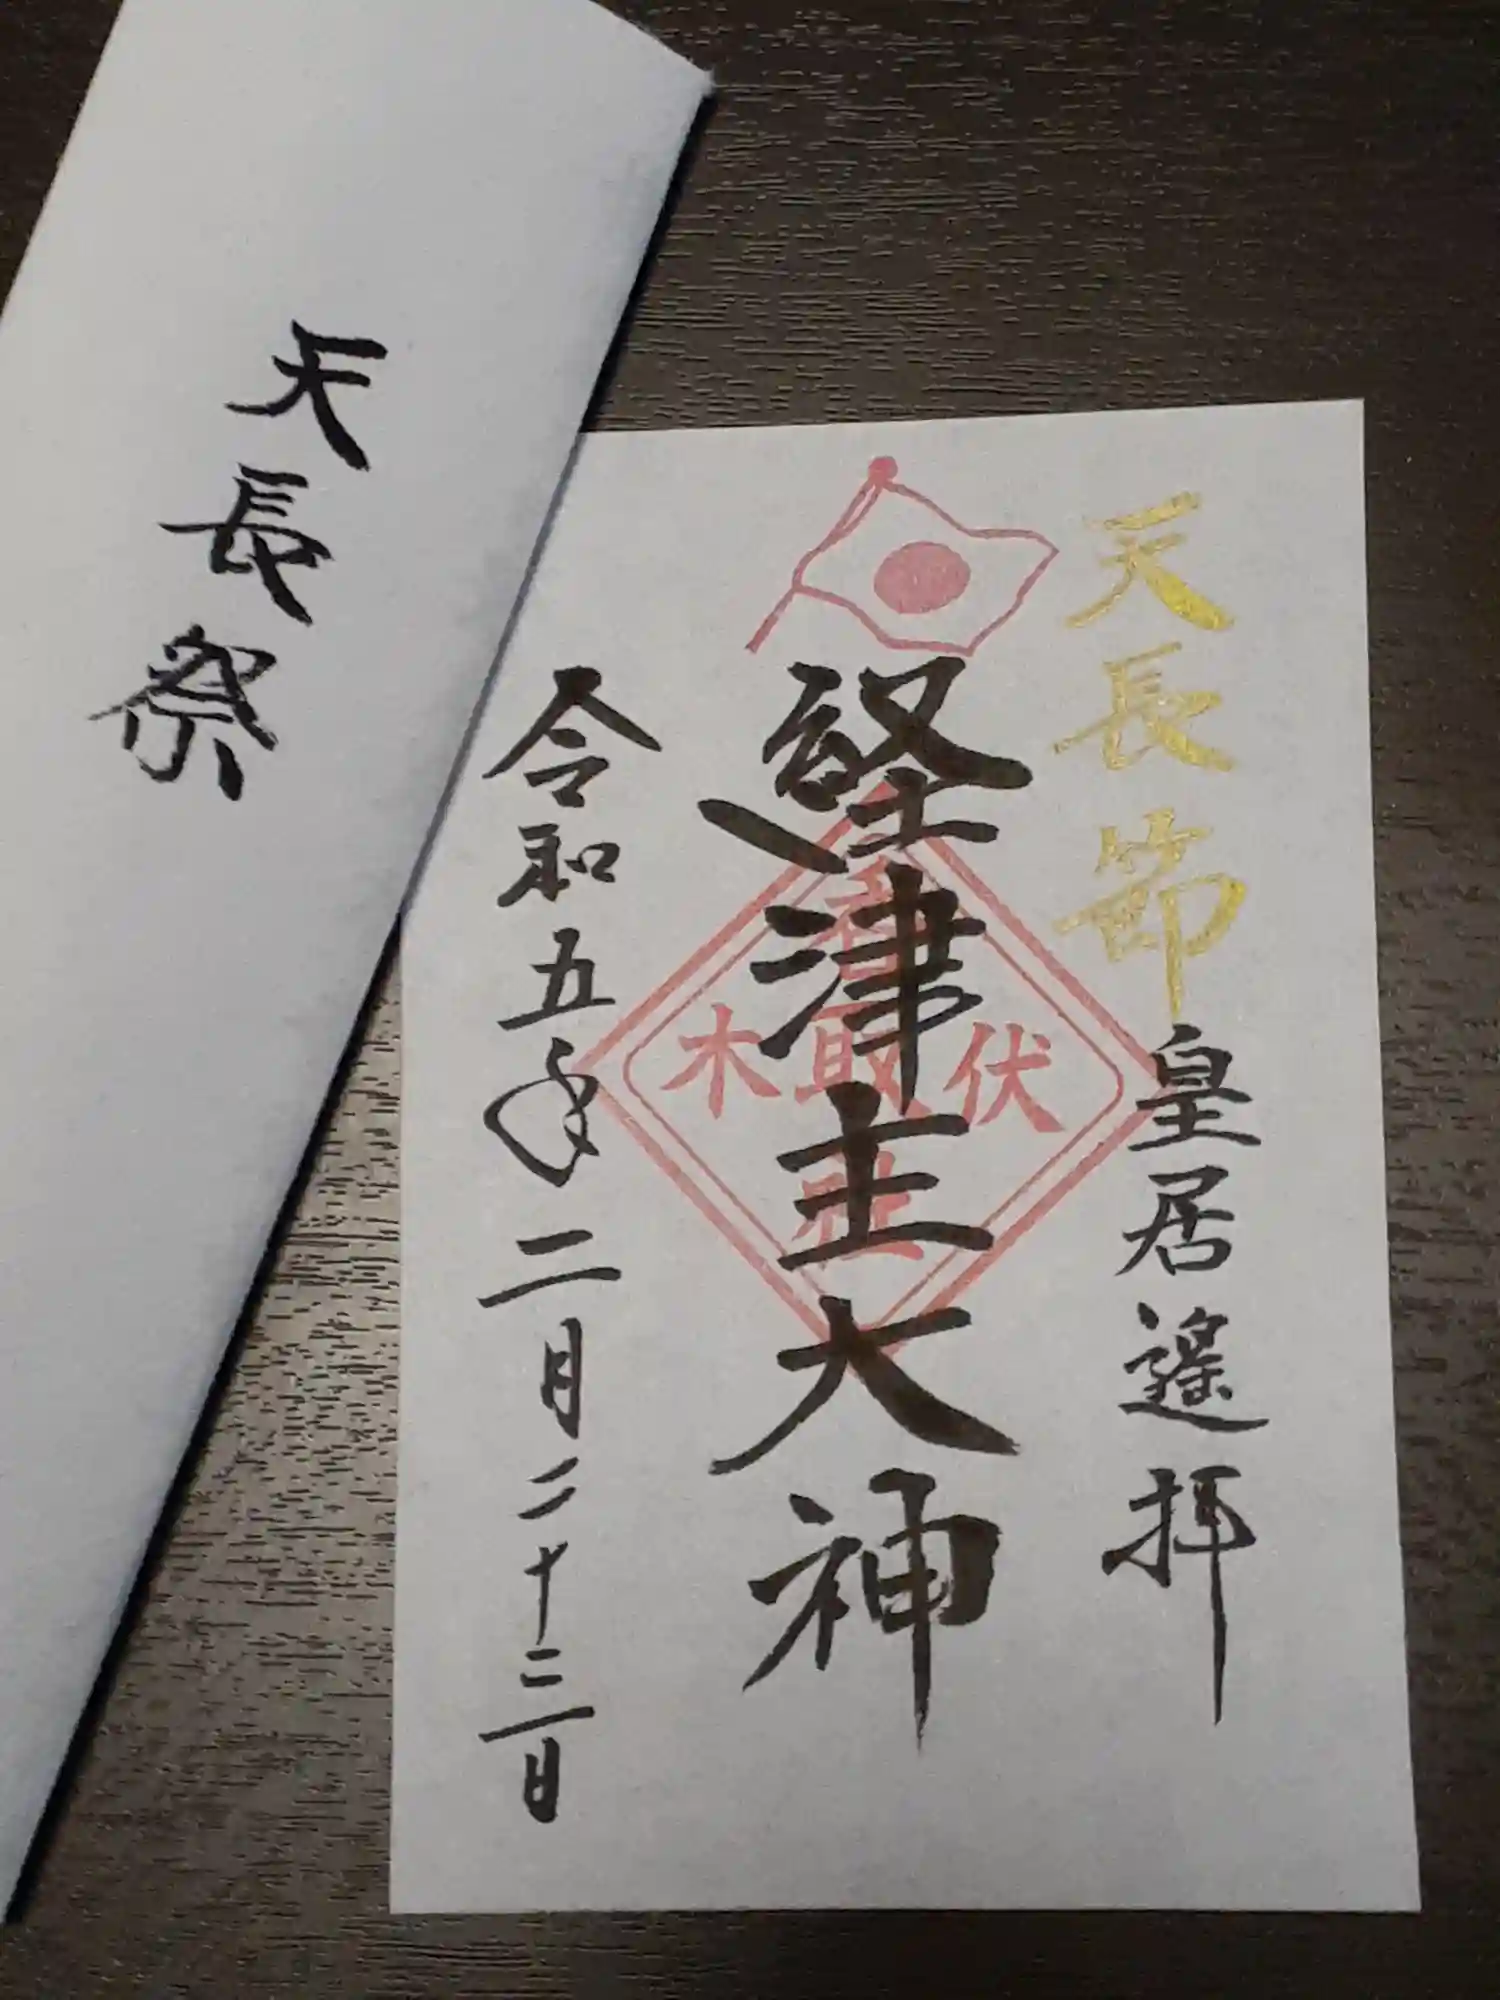 天長祭
天長節
皇居遥拝
経津主大神
令和五年二月二十三日
伏
取
木
社